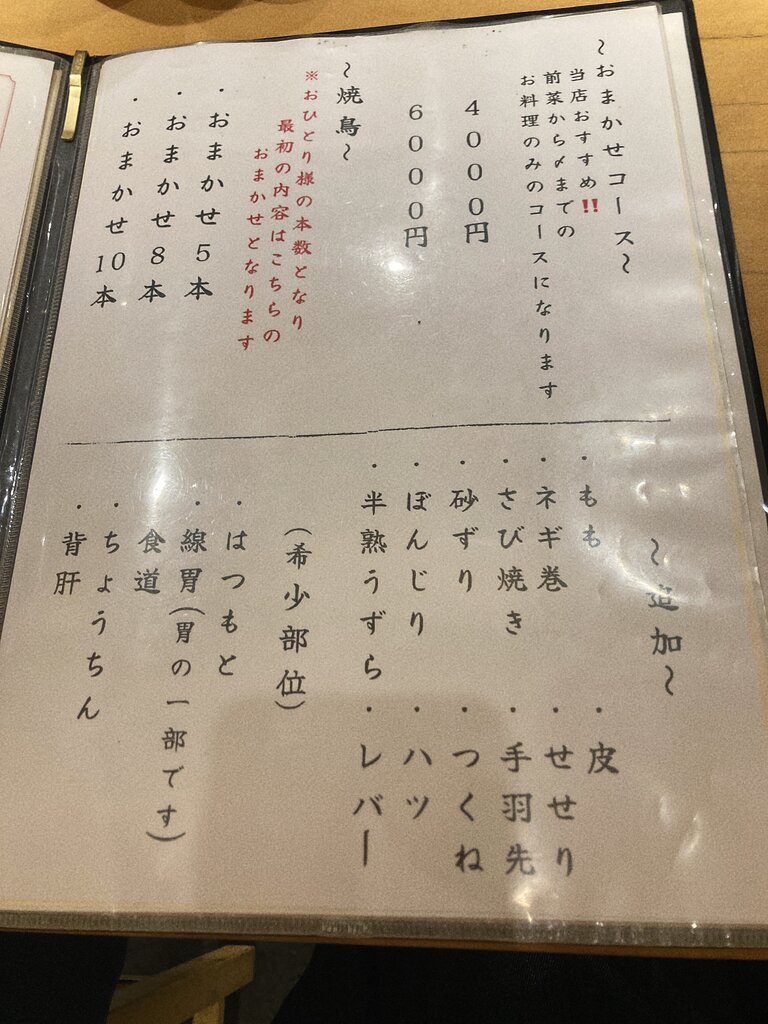 ~おまかせコース~
当店おすすめ‼
前菜から〆までの
お料理のみのコースになります
4000円
6000円
~焼鳥~
※おひとり様の本数となり
最初の内容はこちらの
おまかせとなります
・おまかせ5本
・おまかせ8本
・おまかせ10本
~追加~
・もも
・皮
・ネギ巻
・せせり
・さび焼き
・手羽先
・砂ずり
・つくね
・ぼんじり
・ハツ
・半熟うずら
・レバー
(希少部位)
・はつもと
・線胃(胃の一部です)
食道
・ちょうちん
・背肝